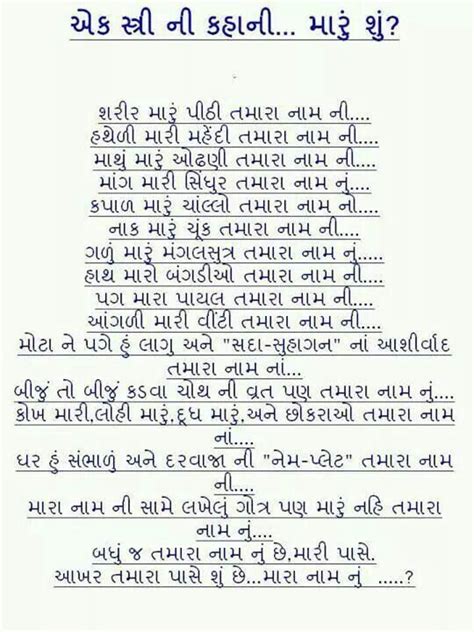 એક સ્ત્રી ની કહાની... મારું શું?
શરીર મારું પીઠી તમારા નામ ની....
હથેળી મારી મહેંદી તમારા નામ ની....
માથું મારું ઓઢણી તમારા નામ ની....
માંગ મારી સિંધુર તમારા નામ નું....
કપાળ મારું ચાંલ્લો તમારા નામ નો....
નાક મારું ચૂંક તમારા નામ ની....
ગળું મારું મંગલસુત્ર તમારા નામ નું.....
હાથ મારો બંગડીઓ તમારા નામ ની....
પગ મારા પાયલ તમારા નામ ની....
આંગળી મારી વીંટી તમારા નામ ની....
મોટા ને પગે હું લાગુ અને "સદા-સુહાગન" નાં આશીર્વાદ
તમારા નામ નાં...
બીજું તો બીજું કડવા ચોથ ની વ્રત પણ તમારા નામ નું....
કોખ મારી,લોહી મારું,દૂધ મારું,અને છોકરાઓ તમારા નામ
નાં....
ઘર હું સંભાળું અને દરવાજા ની "નેમ-પ્લેટ" તમારા નામ
ની....
મારા નામ ની સામે લખેલું ગોત્ર પણ મારું નહિ તમારા
નામ નું....
બધું જ તમારા નામ નું છે,મારી પાસે.
આખર તમારા પાસે શું છે...મારા નામ નું .....?